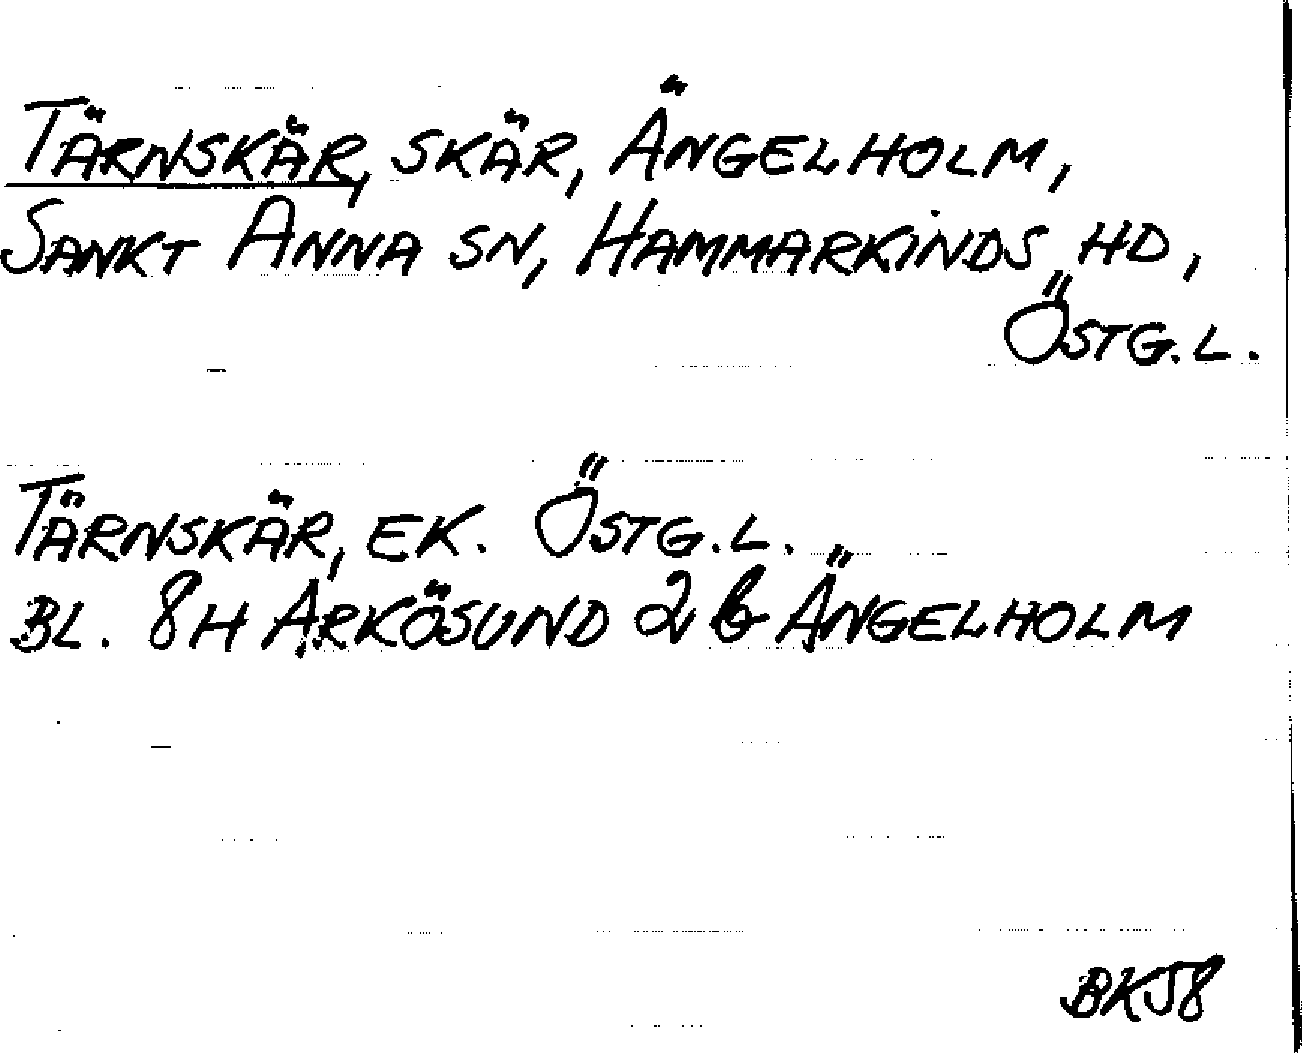 TÄRNSKÄR, SKÄR, ÄNGELHOLM,
SANKT ANNA SN, HAMMARKINDS HD,
ÖSTG.L.
TÄRNSKÄR, EK. ÖSTG.L.
BL. 8H ARKÖSUND 2 b ÄNGELHOLM
BK58